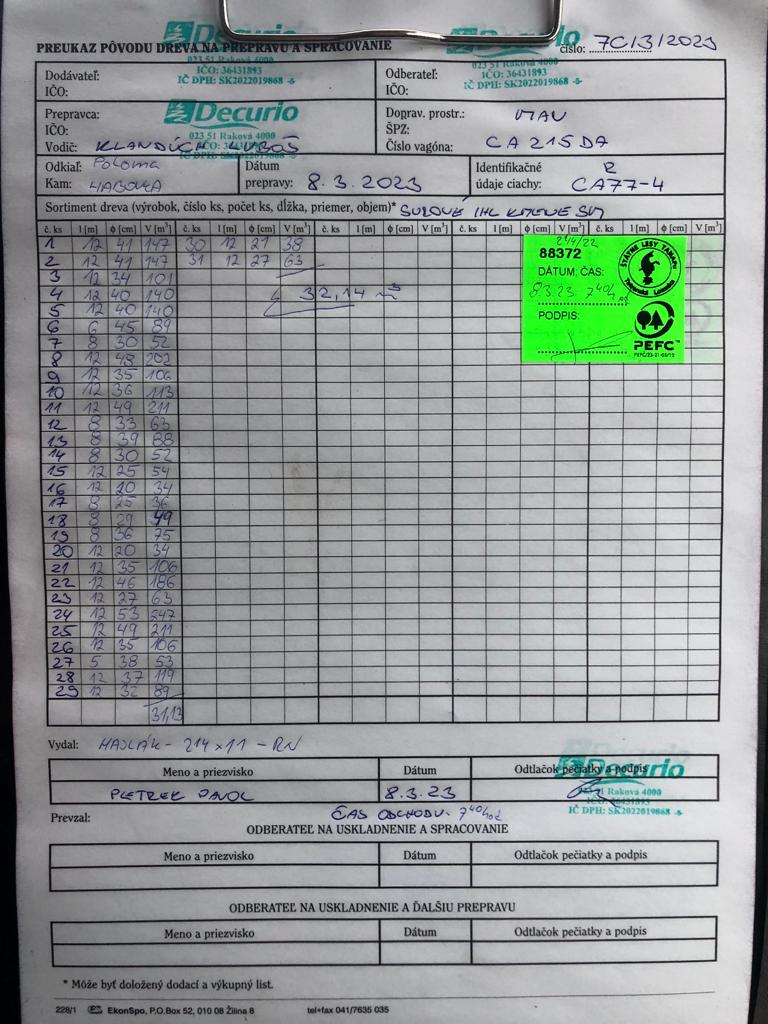 PREUKAZ PÔVODU DREVA NA PREPRAVU A SPRACOVANIE
číslo: 7C/3/2023
Decurio
023 51 Raková 4000
IČO: 36431893
IČ DPH: SK2022019868 -5-
Dodávateľ:
IČO:
Odberateľ:
IČO:
Prepravca:
IČO:
Vodič: KLANDUCH ĽUBOŠ
Doprav. prostr.: MAN
ŠPZ:
Číslo vagóna: CA215DA
Odkiaľ: Poloma
Kam:
Dátum
prepravy: 8.3.2023
Identifikačné R
údaje ciachy: CA77-4
Sortiment dreva (výrobok, číslo ks, počet ks, dĺžka, priemer, objem)* SUROVÉ IHL KMENE SM
č. ks l [m] ϕ [cm] V [m³] č. ks l [m] ϕ [cm] V [m³] č. ks l [m] ϕ [cm] V [m³] č. ks l [m] ϕ [cm] V [m³] č. ks l [m] ϕ [cm] V [m³]
1 12 41 147 30 12 21 38
2 12 41 147 31 12 27 63
3 12 34 101
4 12 40 140 32,14 m³
5 12 40 140
6 6 45 89
7 8 30 52
8 12 48 202
9 12 35 106
10 12 36 113
11 12 49 211
12 8 33 63
13 8 39 88
14 8 30 52
15 12 25 54
16 12 20 34
17 8 25 36
18 8 29 49
19 8 36 75
20 12 20 34
21 12 35 106
22 12 46 186
23 12 27 63
24 12 53 247
25 12 49 211
26 12 35 106
27 5 38 53
28 12 37 119
29 12 32 89
31,13
244/22
88372
DÁTUM, ČAS:
8.3.23 7⁴⁰h
PODPIS:
ŠTÁTNE LESY TANAPU
Tatranská Lomnica
PEFC
Vydal: - 214x11 - RN
Meno a priezvisko Dátum Odtlačok pečiatky a podpis
PIETREK PAVOL 8.3.23
Decurio
023 51 Raková 4000
IČO: 36431893
IČ DPH: SK2022019868 -5-
Prevzal: ČAS ODCHODU: 7⁴⁰hod
ODBERATEĽ NA USKLADNENIE A SPRACOVANIE
Meno a priezvisko Dátum Odtlačok pečiatky a podpis
ODBERATEĽ NA USKLADNENIE A ĎALŠIU PREPRAVU
Meno a priezvisko Dátum Odtlačok pečiatky a podpis
* Môže byť doložený dodací a výkupný list.
228/1 EkonSpo, P.O.Box 52, 010 08 Žilina 8 tel+fax 041/7635 035